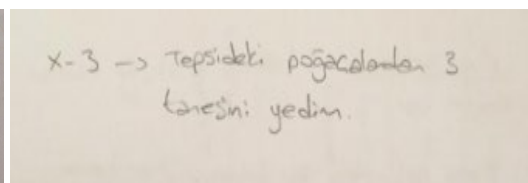 x-3 -> Tepsideki poğaçalardan 3
tanesini yedim.